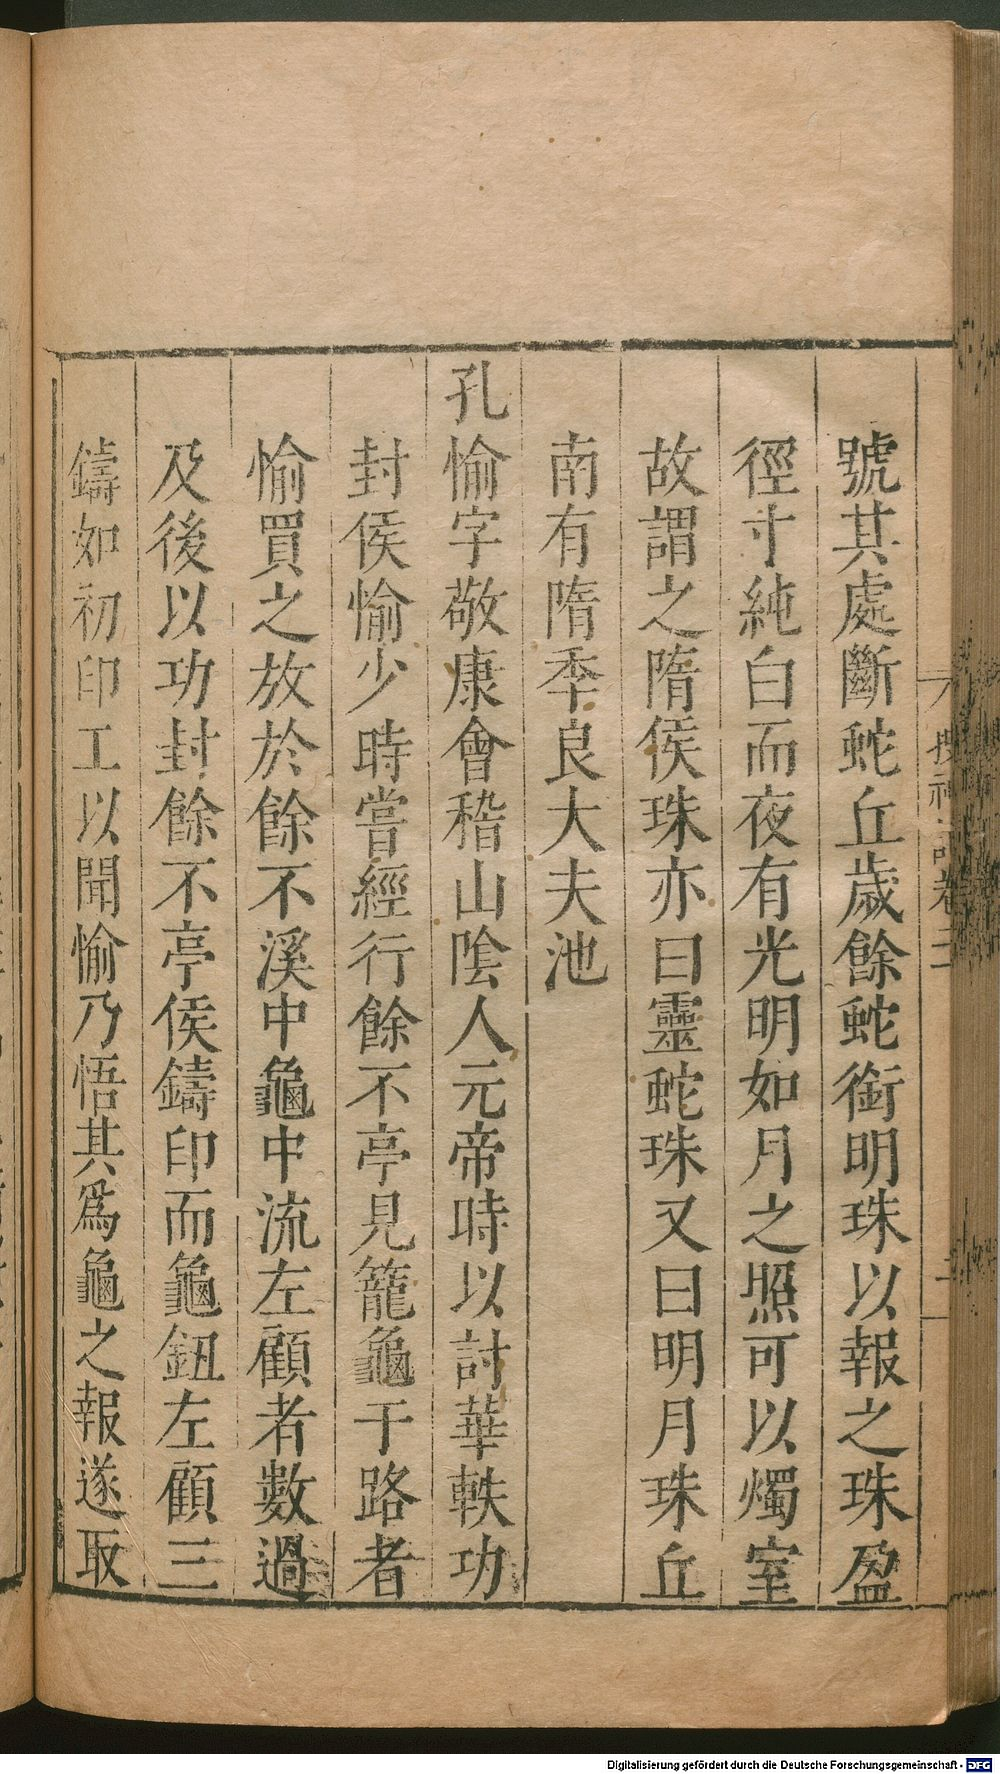 號其處斷蛇丘歲餘蛇銜明珠以報之珠盈
徑寸純白而夜有光明如月之照可以燭室
故謂之隋侯珠亦曰靈蛇珠又曰明月珠丘
南有隋季良大夫池
孔愉字敬康會稽山陰人元帝時以討華軼功
封侯愉少時嘗經行餘不亭見籠龜于路者
愉買之放於餘不溪中龜中流左顧者數過
及後以功封餘不亭侯鑄印而龜鈕左顧三
鑄如初印工以聞愉乃悟其爲龜之報遂取
Digitalisierung gefördert durch die Deutsche Forschungsgemeinschaft - DFG